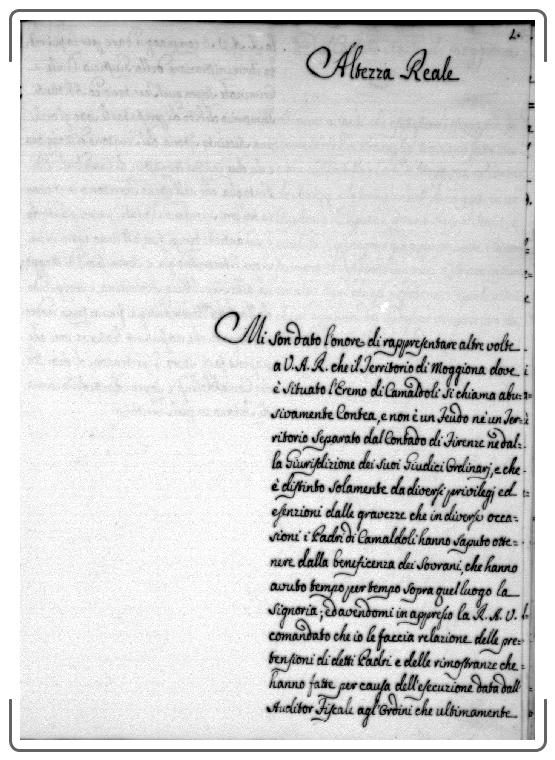 2.
Altezza Reale
Mi son dato l'onore di rappresentare altre volte
a V. A. R. che il Territorio di Moggiona dove
è situato l'Eremo di Camaldoli si chiama abu=
sivamente Contea, e non è un Feudo nè un Ter=
ritorio separato dal Contado di Firenze nè dal=
la Giurisdizione dei suoi Giudici Ordinarj, e che
è distinto solamente da diversi privilegj ed
esenzioni dalle gravezze che in diverse occa=
sioni i Padri di Camaldoli hanno saputo otte=
nere dalla beneficenza dei Sovrani, che hanno
avuto tempo per tempo sopra quel luogo la
Signoria; ed avendomi in appresso la R. A. V.
comandato che io le faccia relazione delle pre=
tensioni di detti Padri e delle rimostranze che
hanno fatte per causa dell'esecuzione data dall'
Auditor Fiscale agl'Ordini che ultimamente